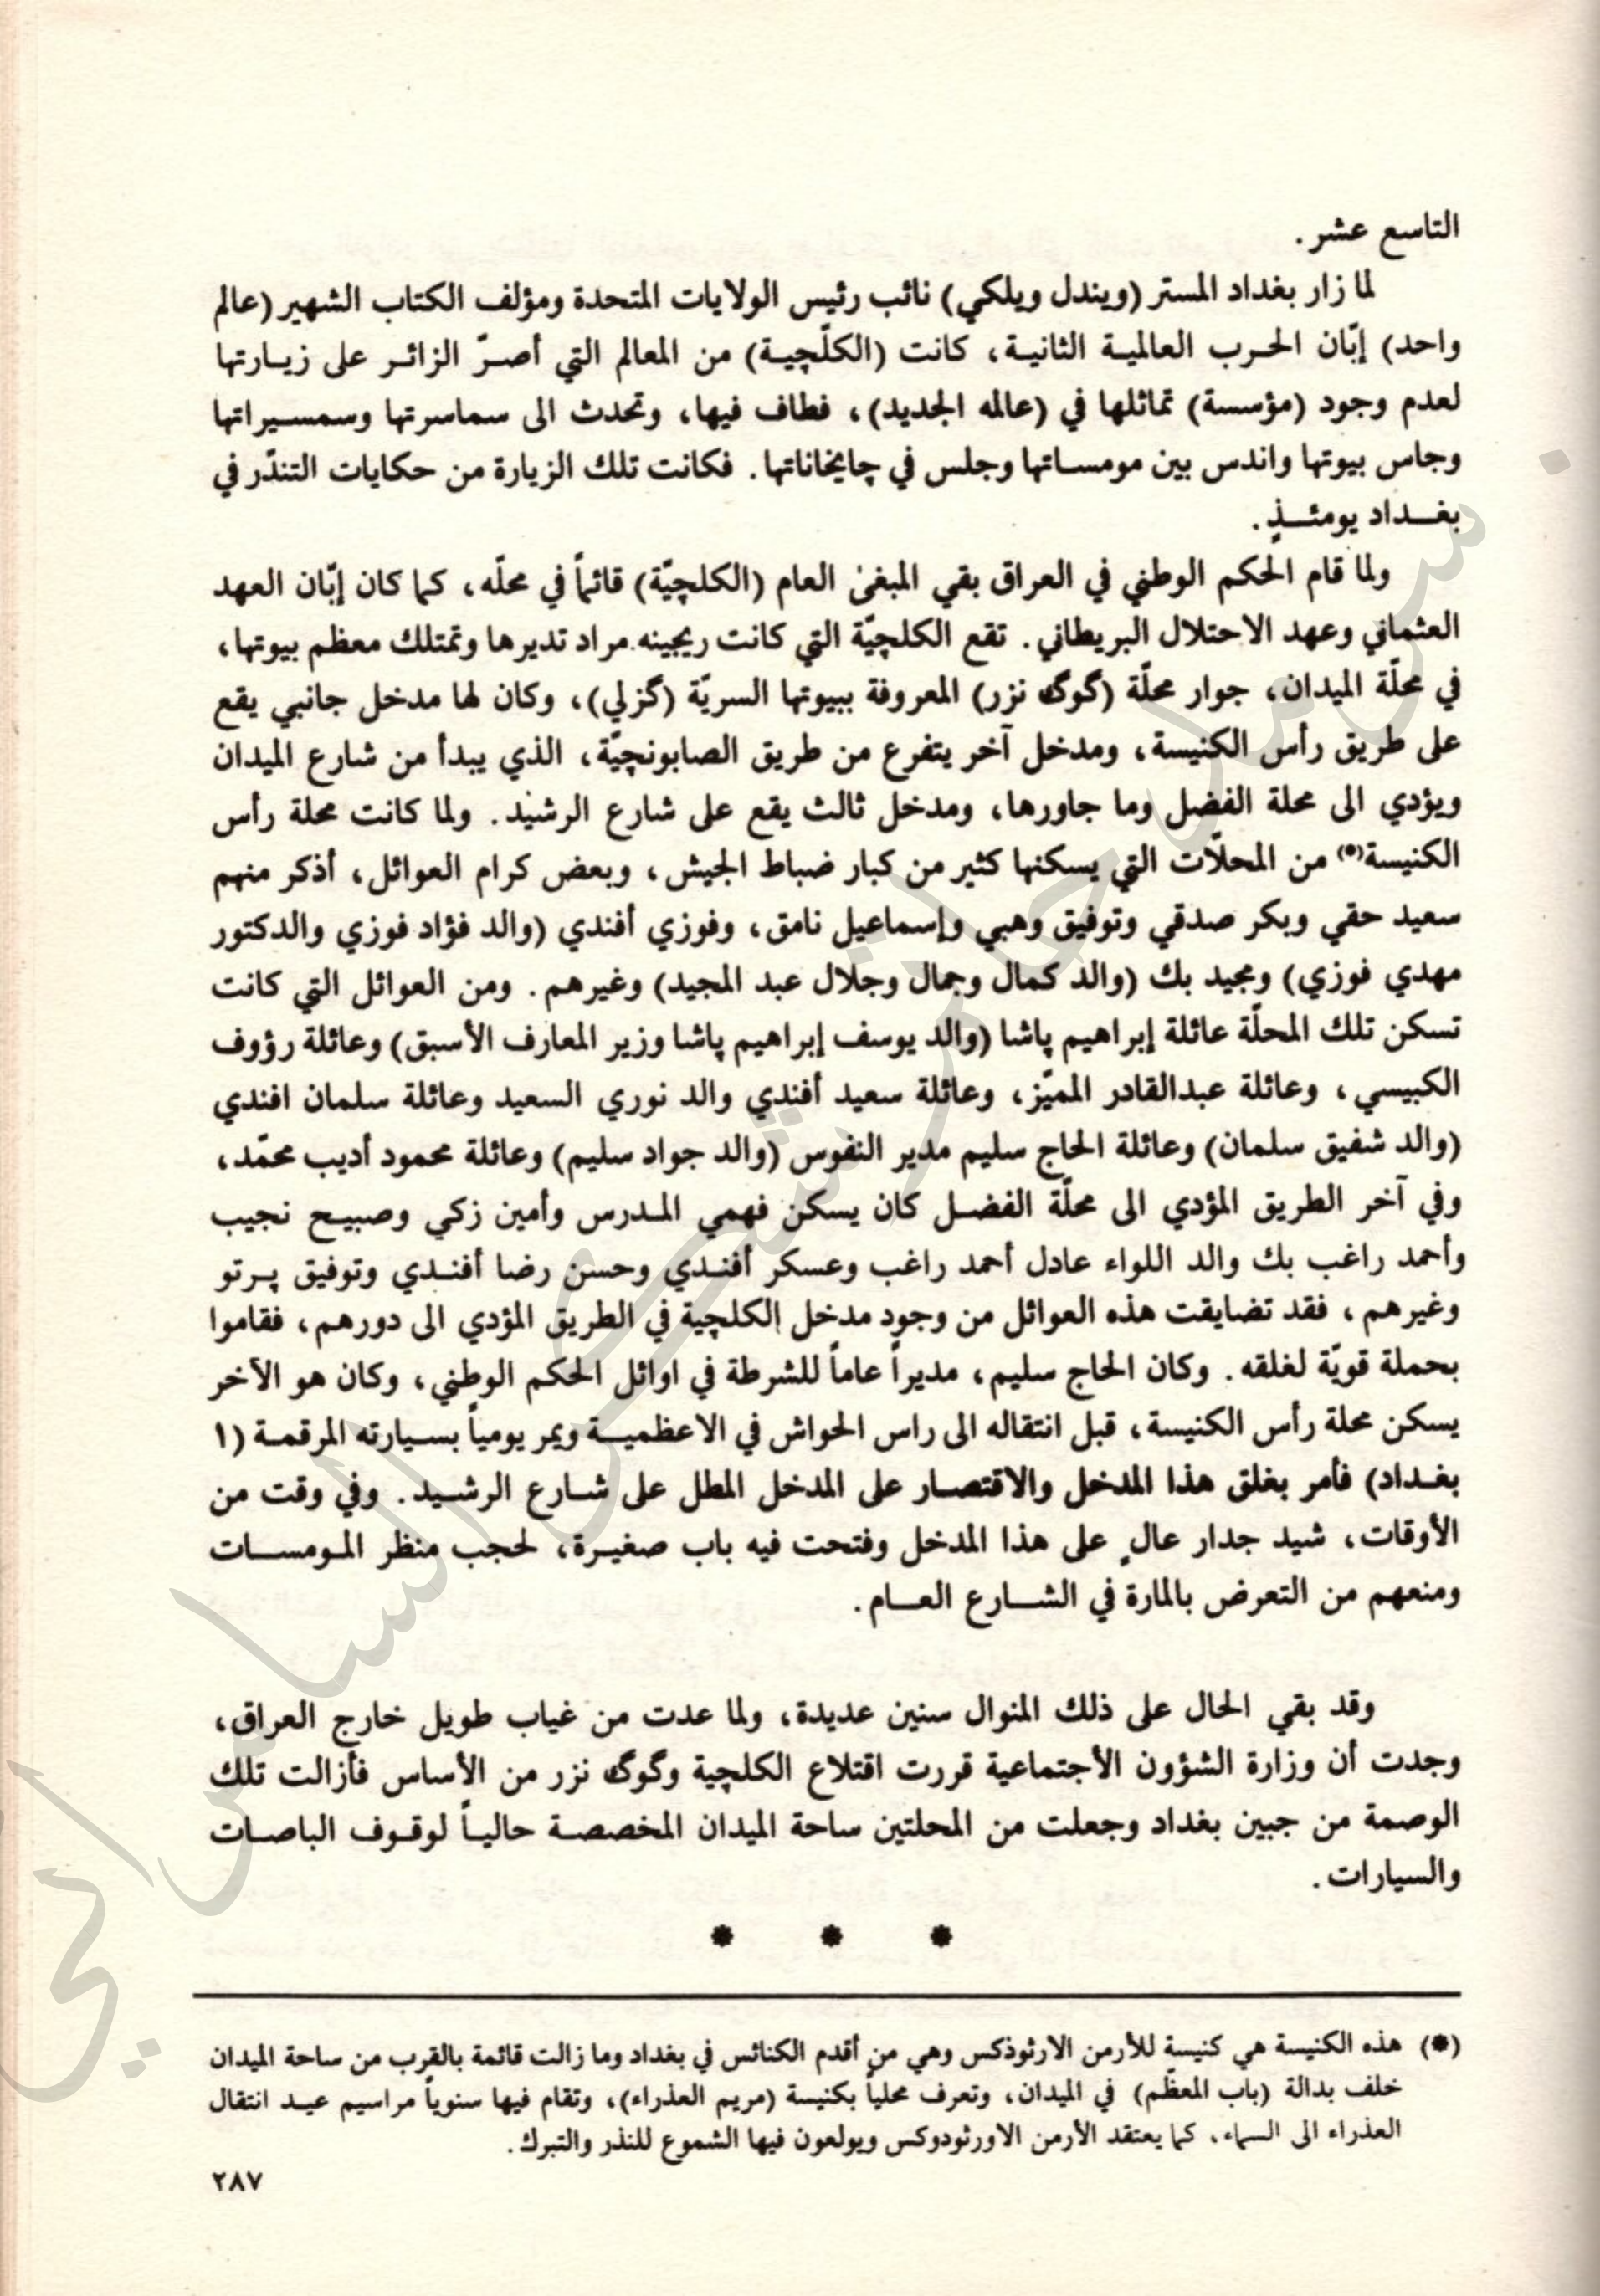 التاسع عشر .
لما زار بغداد المستر (ويندل ويلكي) نائب رئيس الولايات المتحدة ومؤلف الكتاب الشهير (عالم
واحد) إبّان الحرب العالمية الثانية، كانت (الكلّچية) من المعالم التي أصرّ الزائر على زيارتها
لعدم وجود (مؤسسة) تماثلها في (عالمه الجديد)، فطاف فيها، وتحدث الى سماسرتها وسمسيراتها
وجاس بيوتها واندس بين مومساتها وجلس في چايخاناتها . فكانت تلك الزيارة من حكايات التندّر في
بغداد يومئذٍ .
ولما قام الحكم الوطني في العراق بقي المبغى العام (الكلچيّة) قائماً في محلّه، كما كان إبّان العهد
العثماني وعهد الاحتلال البريطاني . تقع الكلچيّة التي كانت ريجينه مراد تديرها وتمتلك معظم بيوتها،
في محلّة الميدان، جوار محلّة (گوگ نزر) المعروفة ببيوتها السريّة (گزلي)، وكان لها مدخل جانبي يقع
على طريق رأس الكنيسة، ومدخل آخر يتفرع من طريق الصابونچيّة، الذي يبدأ من شارع الميدان
ويؤدي الى محلة الفضل وما جاورها، ومدخل ثالث يقع على شارع الرشيد . ولما كانت محلة رأس
الكنيسة(*) من المحلاّت التي يسكنها كثير من كبار ضباط الجيش، وبعض كرام العوائل، أذكر منهم
سعيد حقي وبكر صدقي وتوفيق وهبي وإسماعيل نامق، وفوزي أفندي (والد فؤاد فوزي والدكتور
مهدي فوزي) ومجيد بك (والد كمال وجمال وجلال عبد المجيد) وغيرهم . ومن العوائل التي كانت
تسكن تلك المحلّة عائلة إبراهيم پاشا (والد يوسف إبراهيم پاشا وزير المعارف الأسبق) وعائلة رؤوف
الكبيسي، وعائلة عبدالقادر المميّز، وعائلة سعيد أفندي والد نوري السعيد وعائلة سلمان افندي
(والد شفيق سلمان) وعائلة الحاج سليم مدير النفوس (والد جواد سليم) وعائلة محمود أديب محمّد،
وفي آخر الطريق المؤدي الى محلّة الفضل كان يسكن فهمي المدرس وأمين زكي وصبيح نجيب
وأحمد راغب بك والد اللواء عادل أحمد راغب وعسكر أفندي وحسن رضا أفندي وتوفيق پرتو
وغيرهم، فقد تضايقت هذه العوائل من وجود مدخل الكلچية في الطريق المؤدي الى دورهم، فقاموا
بحملة قويّة لغلقه . وكان الحاج سليم، مديراً عاماً للشرطة في اوائل الحكم الوطني، وكان هو الآخر
يسكن محلة رأس الكنيسة، قبل انتقاله الى راس الحواش في الاعظمية ويمر يومياً بسيارته المرقمة (١
بغداد) فأمر بغلق هذا المدخل والاقتصار على المدخل المطل على شارع الرشيد . وفي وقت من
الأوقات، شيد جدار عالٍ على هذا المدخل وفتحت فيه باب صغيرة، لحجب منظر المومسات
ومنعهم من التعرض بالمارة في الشارع العام .
وقد بقي الحال على ذلك المنوال سنين عديدة، ولما عدت من غياب طويل خارج العراق،
وجدت أن وزارة الشؤون الأجتماعية قررت اقتلاع الكلچية وگوگ نزر من الأساس فأزالت تلك
الوصمة من جبين بغداد وجعلت من المحلتين ساحة الميدان المخصصة حالياً لوقوف الباصات
والسيارات .
* * *
(*) هذه الكنيسة هي كنيسة للأرمن الارثوذكس وهي من أقدم الكنائس في بغداد وما زالت قائمة بالقرب من ساحة الميدان
خلف بدالة (باب المعظّم) في الميدان، وتعرف محلياً بكنيسة (مريم العذراء)، وتقام فيها سنوياً مراسيم عيد انتقال
العذراء الى السماء، كما يعتقد الأرمن الاورثودوكس ويولعون فيها الشموع للنذر والتبرك .
٢٨٧